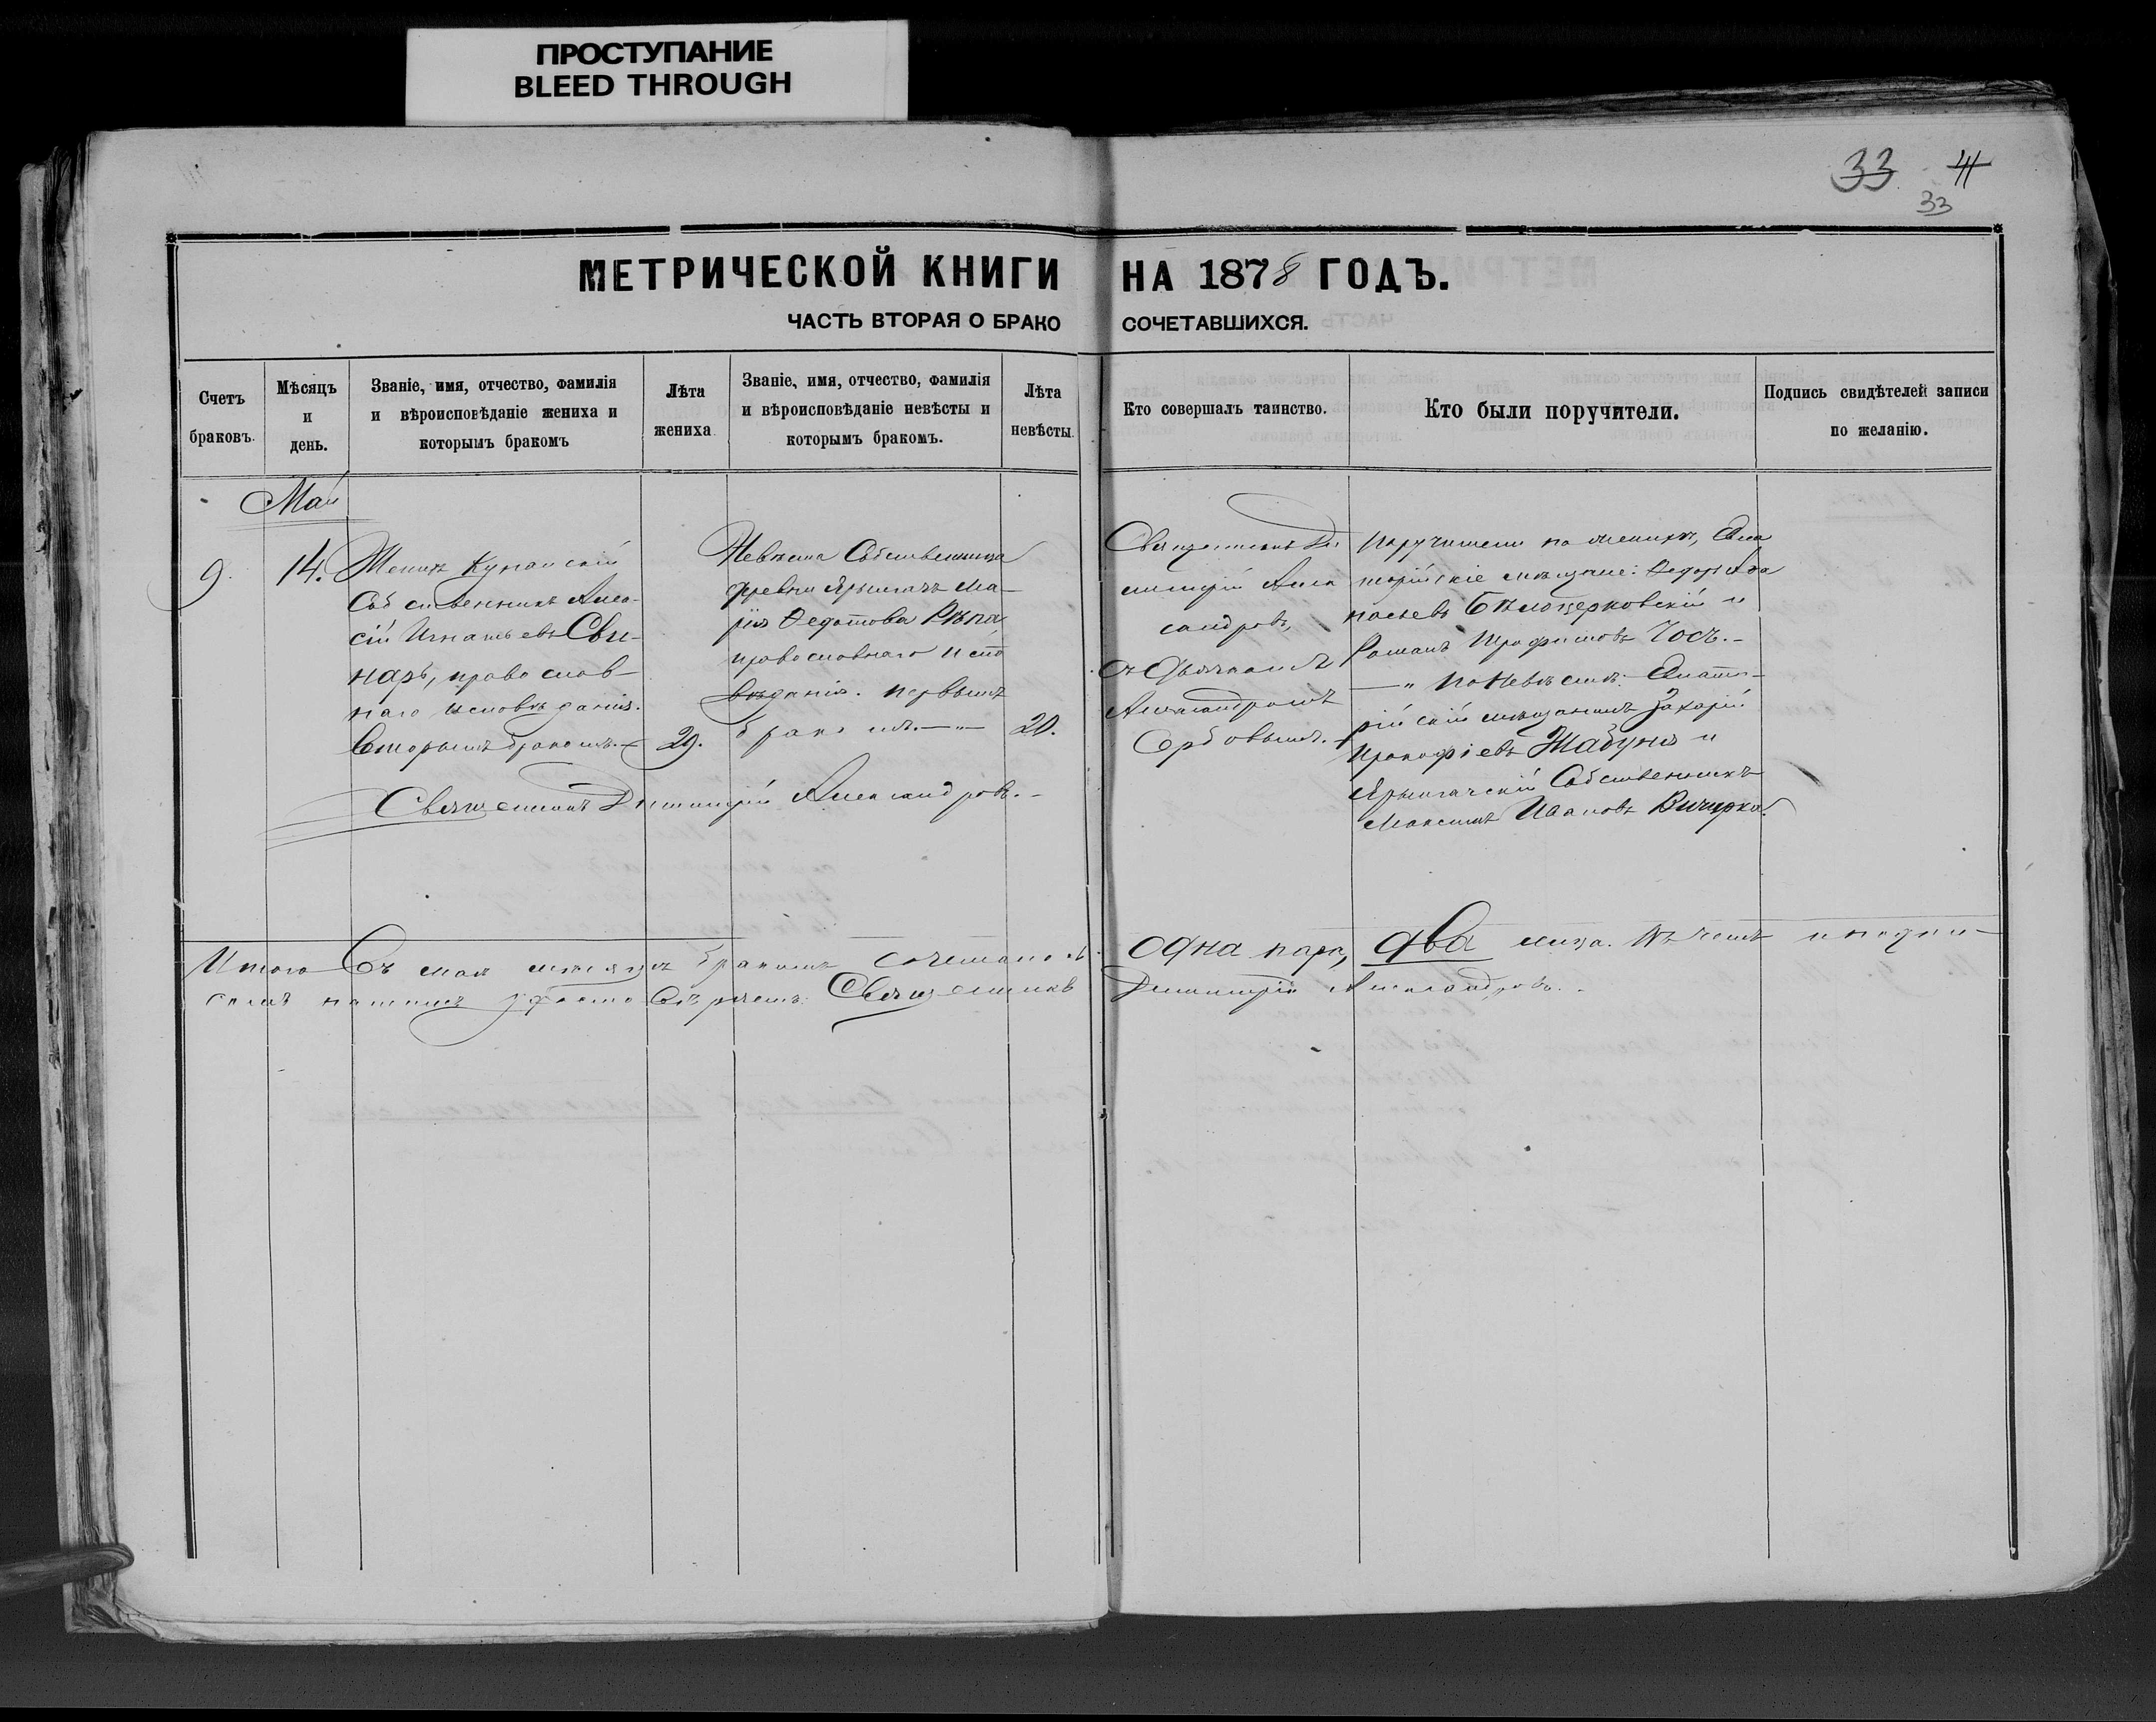 ПРОСТУПАНИЕ
BLEED THROUGH
33 41
33
МЕТРИЧЕСКОЙ КНИГИ НА 1878 ГОДЪ.
ЧАСТЬ ВТОРАЯ О БРАКО СОЧЕТАВШИХСЯ.
Счетъ
браковъ.
Мѣсяцъ
и
день.
Званіе, имя, отчество, фамилія
и вѣроисповѣданіе жениха и
которымъ бракомъ
Лѣта
жениха
Званіе, имя, отчество, фамилія
и вѣроисповѣданіе невѣсты и
которымъ бракомъ.
Лѣта
невѣсты.
Кто совершалъ таинство.
Кто были поручители.
Подпись свидѣтелей записи
по желанію.
Май
9.
14.
Женихъ
Собственникъ Алек-
сій Игнатьевъ Сви-
нарь, православ-
наго исповѣданія.
Вторымъ бракомъ.
29.
Невѣста Собственница
Деревни Ярылгачъ Ма-
рія Федотова Рѣпа
православнаго испо
вѣданія. первымъ
бракомъ.
20.
Священникъ Ди
митрій Алек
сандровъ,
съ Дьячкомъ
Александромъ
Сербовымъ.
Поручители по женихѣ,
мѣщане: Федоръ Афа
насьевъ Бѣлоцерковскій и
Романъ Трофимовъ Чосъ.-
— " По Невѣстѣ:
мѣщанинъ Захарій
Прокофіевъ Жабуня и
Ярылгачскій Собственникъ
Максимъ Ивановъ
Священникъ Димитрій Александровъ.-
Итого Въ маѣ мѣсяцѣ бракомъ сочетано одна пара, два лица. Въ чемъ и подпи-
сомъ нашимъ удостовѣряемъ. Священникъ Димитрій Александровъ.